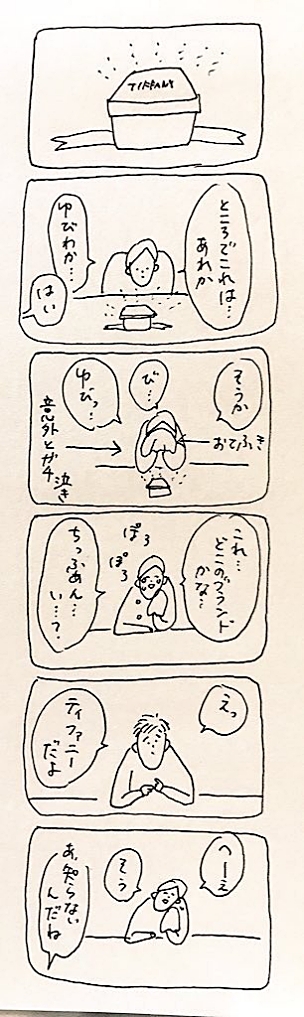 TIFFANY
ところでこれは…
あれか
ゆびわか…
はい
そうか
び…
ゆびっ…
おてふき
意外とガチ
泣き
これ…
どこのブランド
かな…
ぽろ
ぽろ
ちっふぁん…
い…?
えっ
ティファニー
だよ
へーえ
そう
あ、知らない
んだね